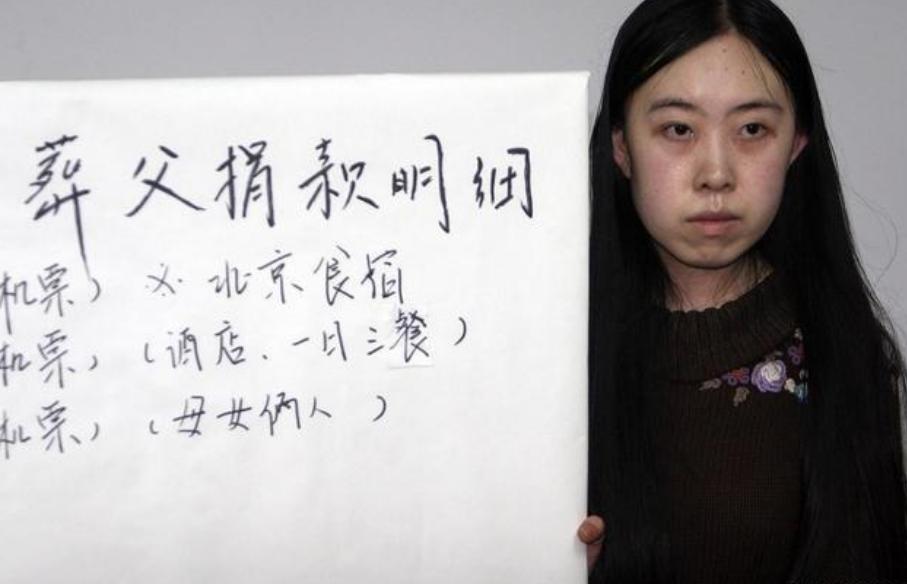 葬父捐款明细
机票） ※北京食宿
机票）（酒店、一日三餐）
机票）（母女俩人）